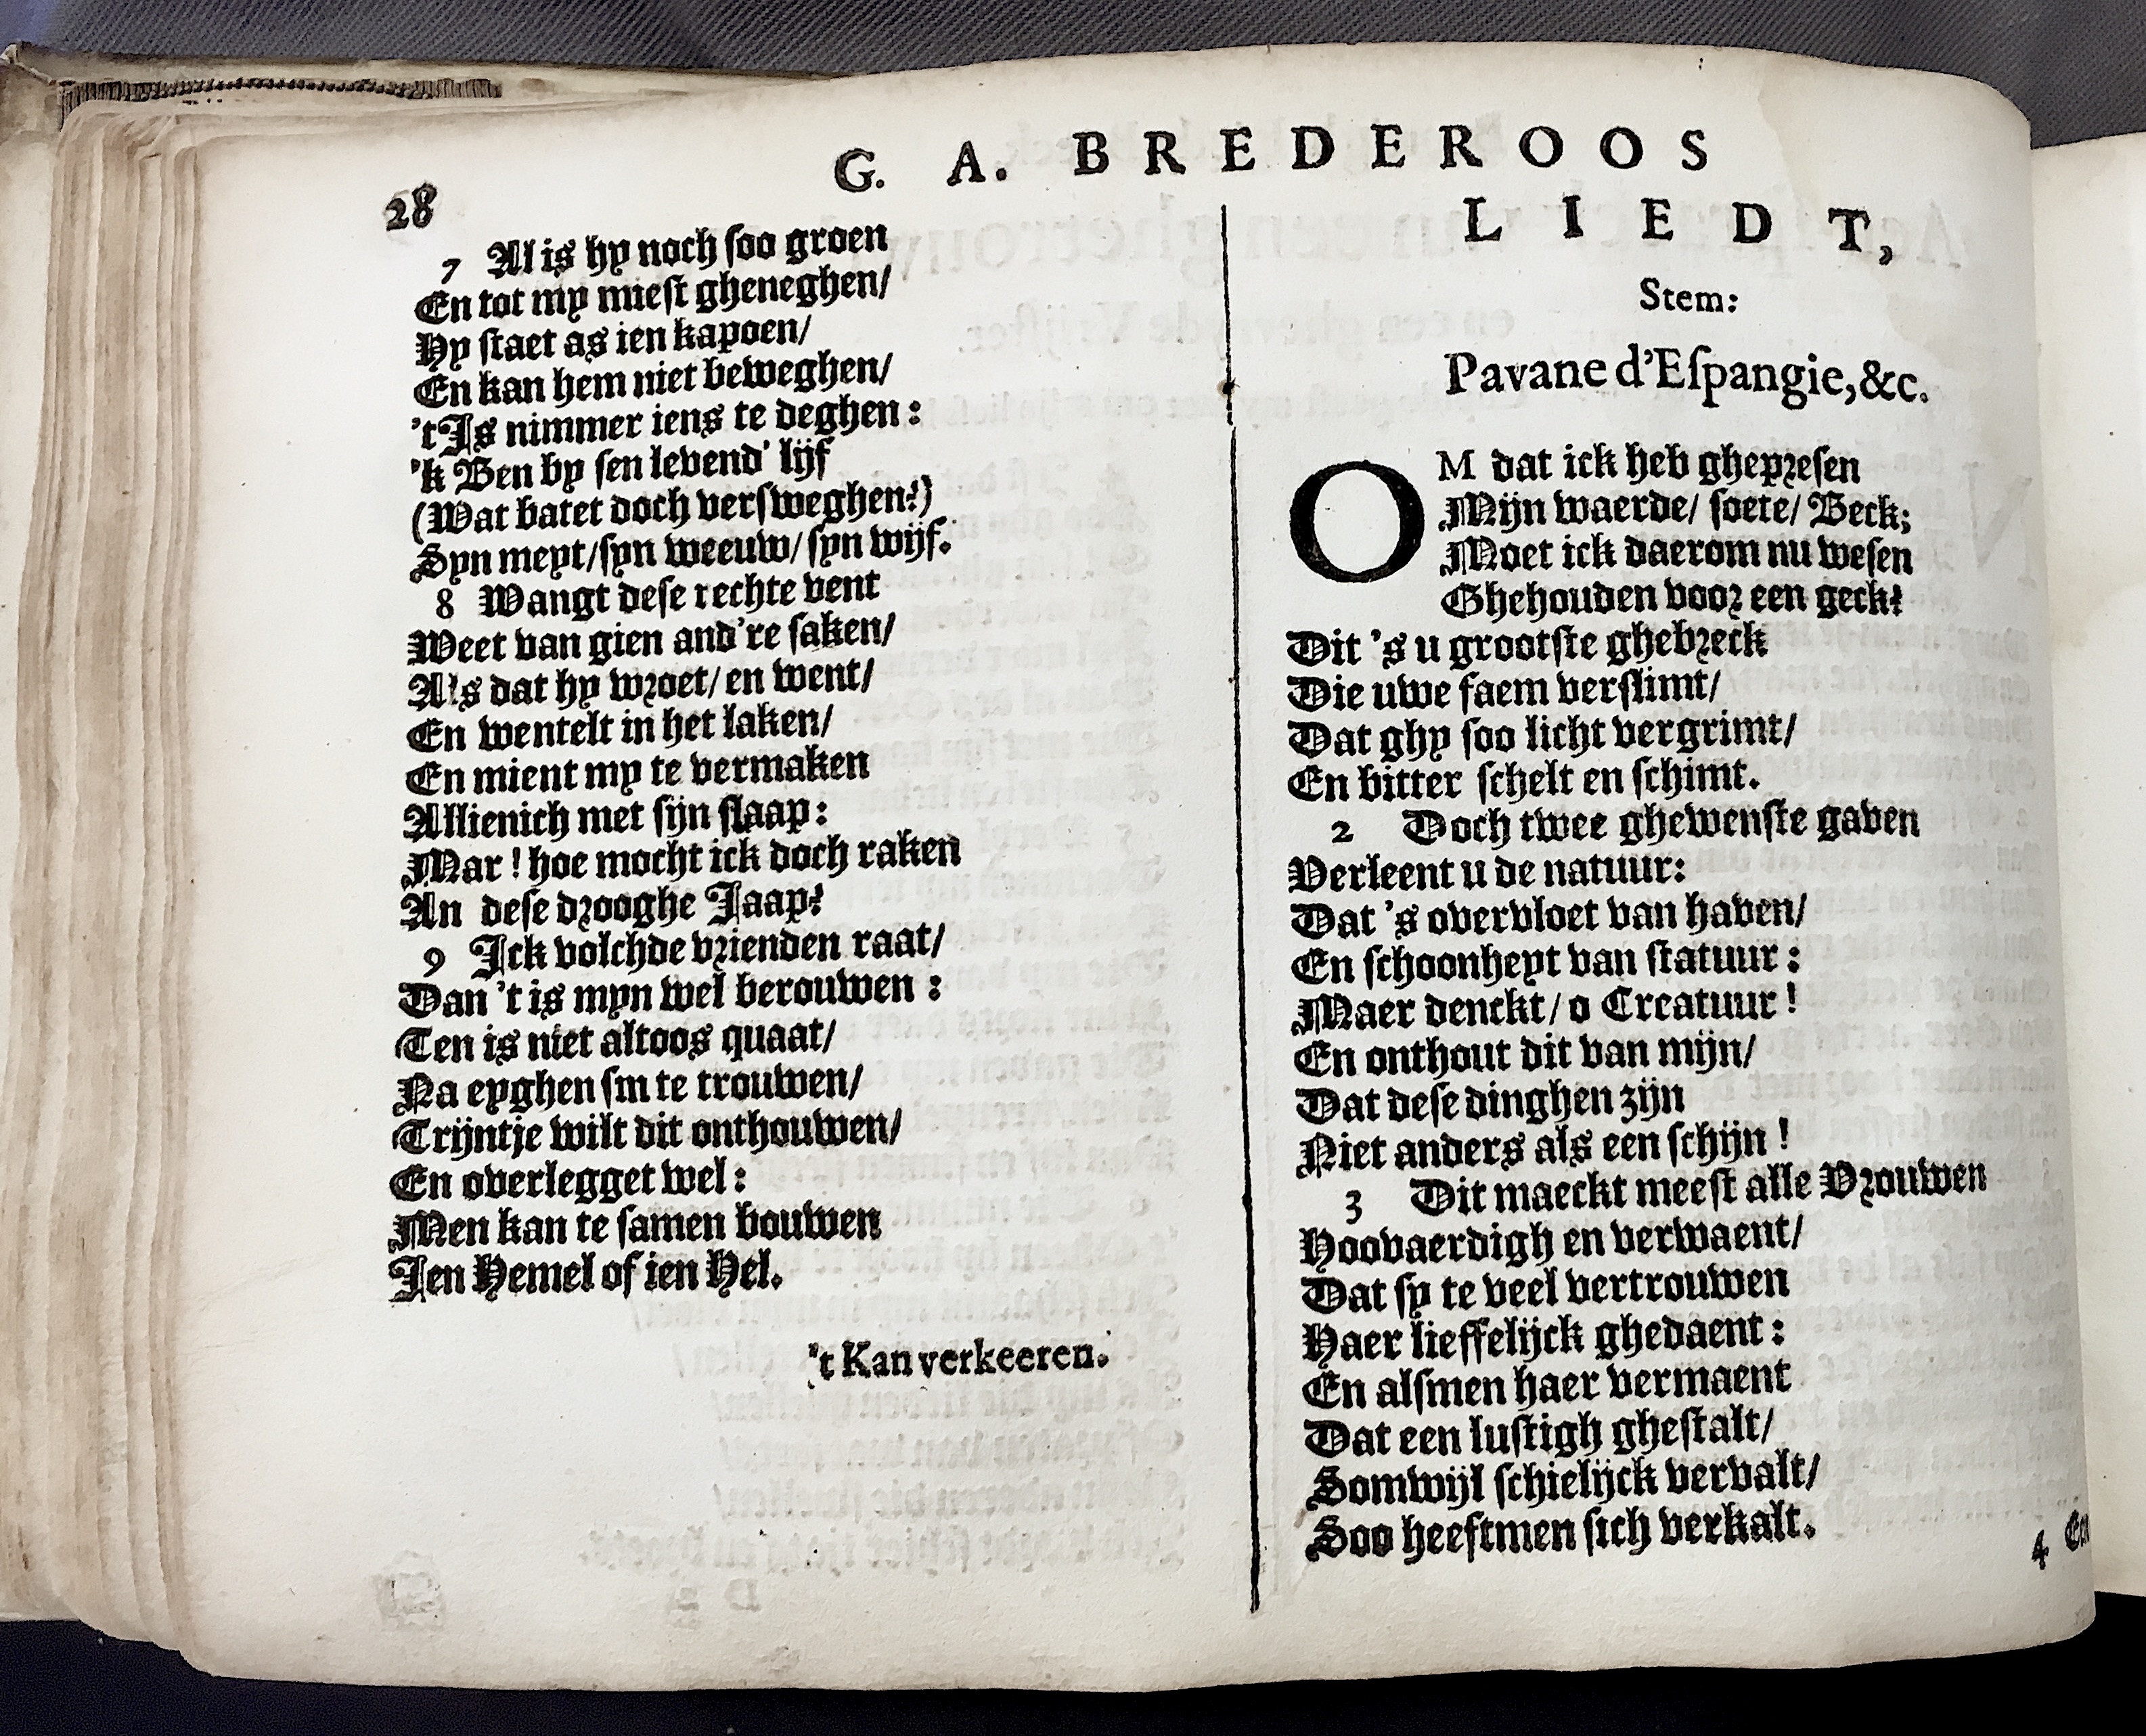 28
G. A. BREDEROOS
7 Al is hy noch ſoo groen
En tot my mieſt gheneghen/
Hy ſtaet as ien kapoen/
En kan hem niet beweghen/
't Is nimmer iens te deghen:
'k Ben by ſen levend' lijf
(Wat batet doch verſweghen?)
Syn meyt/ſyn weeuw/ſyn wijf.
8 Wangt deſe rechte vent
Weet van gien and're ſaken/
Als dat hy wroet/ en went/
En wentelt in het laken/
En mient my te vermaken
Allienich met ſijn ſlaap:
Mar! hoe mocht ick doch raken
An deſe drooghe Jaap?
9 Ick volchde vrienden raat/
Dan 't is myn wel berouwen:
Ten is niet altoos quaat/
Na eyghen ſin te trouwen/
Trijntje wilt dit onthouwen/
En overlegget wel:
Men kan te ſamen bouwen
Ien Hemel of ien Hel.
't Kan verkeeren.
LIEDT,
Stem:
Pavane d'Eſpangie, &c.
OM dat ick heb ghepreſen
Mijn waerde/ ſoete/ Beck;
Moet ick daerom nu weſen
Ghehouden voor een geck?
Dit 's u grootſte ghebreck
Die uwe faem verſlimt/
Dat ghy ſoo licht vergrimt/
En bitter ſchelt en ſchimt.
2 Doch twee ghewenſte gaven
Verleent u de natuur:
Dat 's overvloet van haven/
En ſchoonheyt van ſtatuur:
Maer denckt/ o Creatuur!
En onthout dit van mijn/
Dat deſe dinghen zijn
Niet anders als een ſchijn!
3 Dit maeckt meeſt alle Vrouwen
Hoovaerdigh en verwaent/
Dat ſy te veel vertrouwen
Haer lieffelijck ghedaent:
En alſmen haer vermaent
Dat een luſtigh gheſtalt/
Somwijl ſchielijck vervalt/
Soo heeftmen ſich verkalt.
4